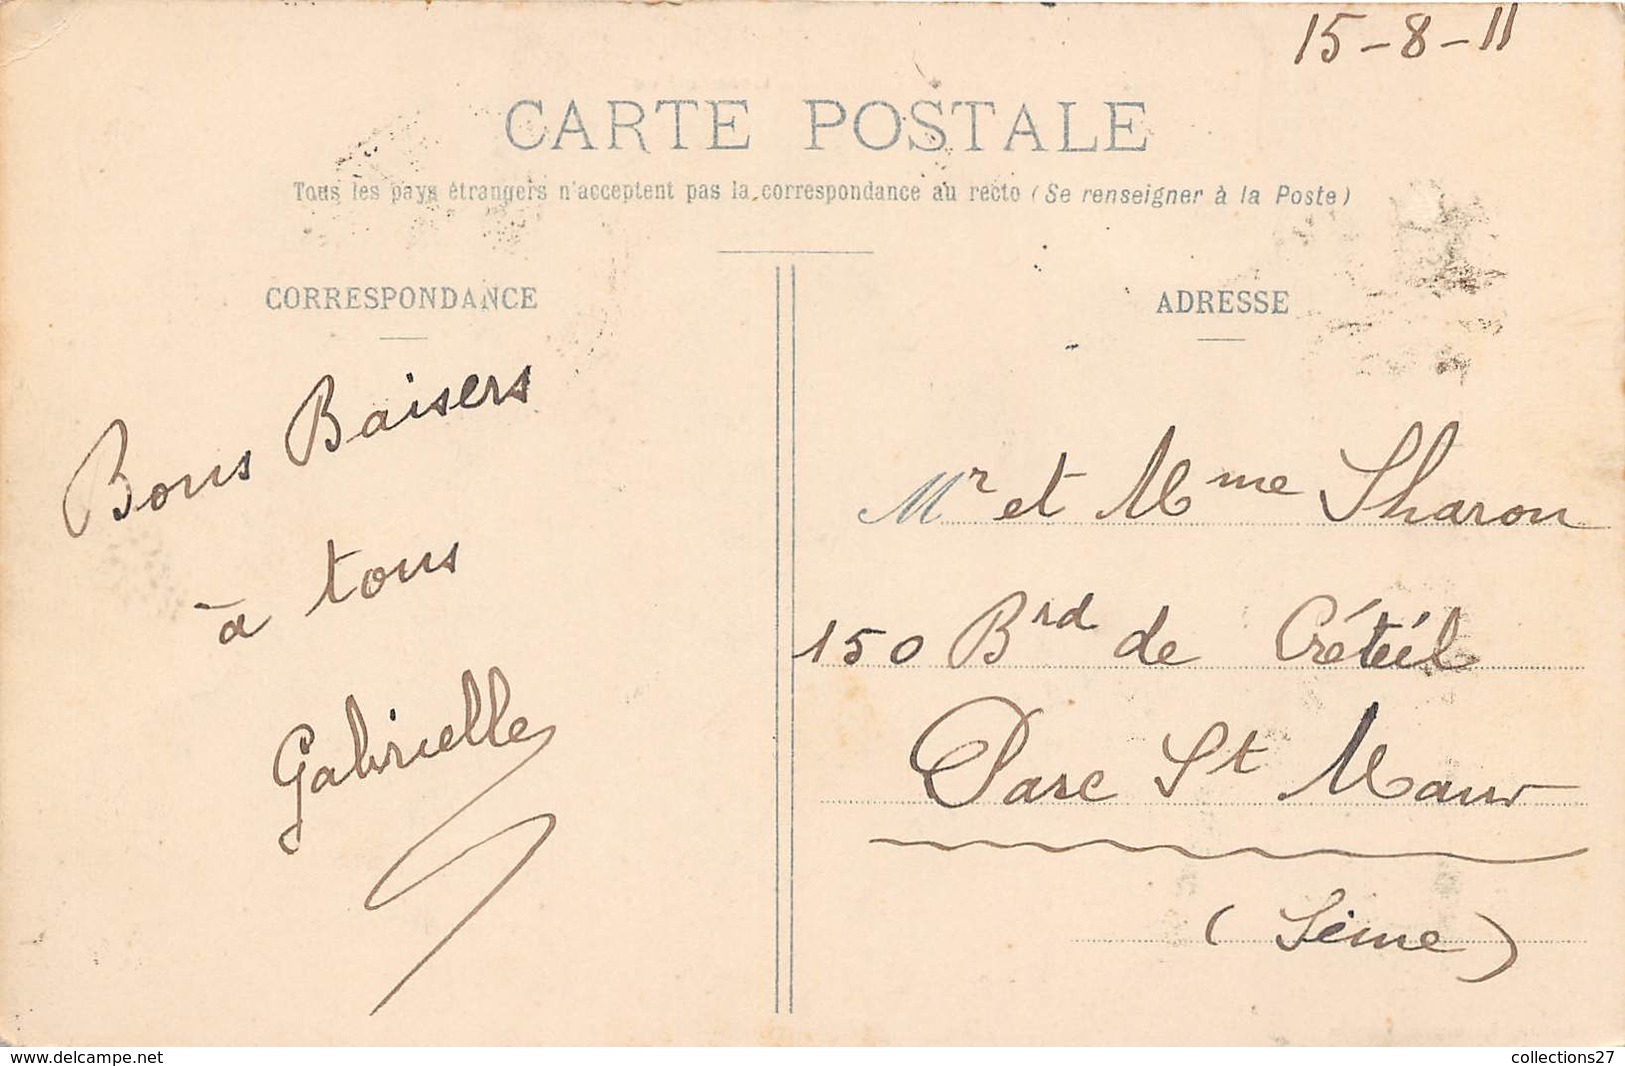 15-8-11
CARTE POSTALE
Tous les pays étrangers n'acceptent pas la correspondance au recto (Se renseigner à la Poste)
CORRESPONDANCE
Bons Baisers
à tous
Gabrielle
ADRESSE
Mr et Mme Sharon
150 Brd de Créteil
Parc St Maur
(Seine)
www.delcampe.net
collections27